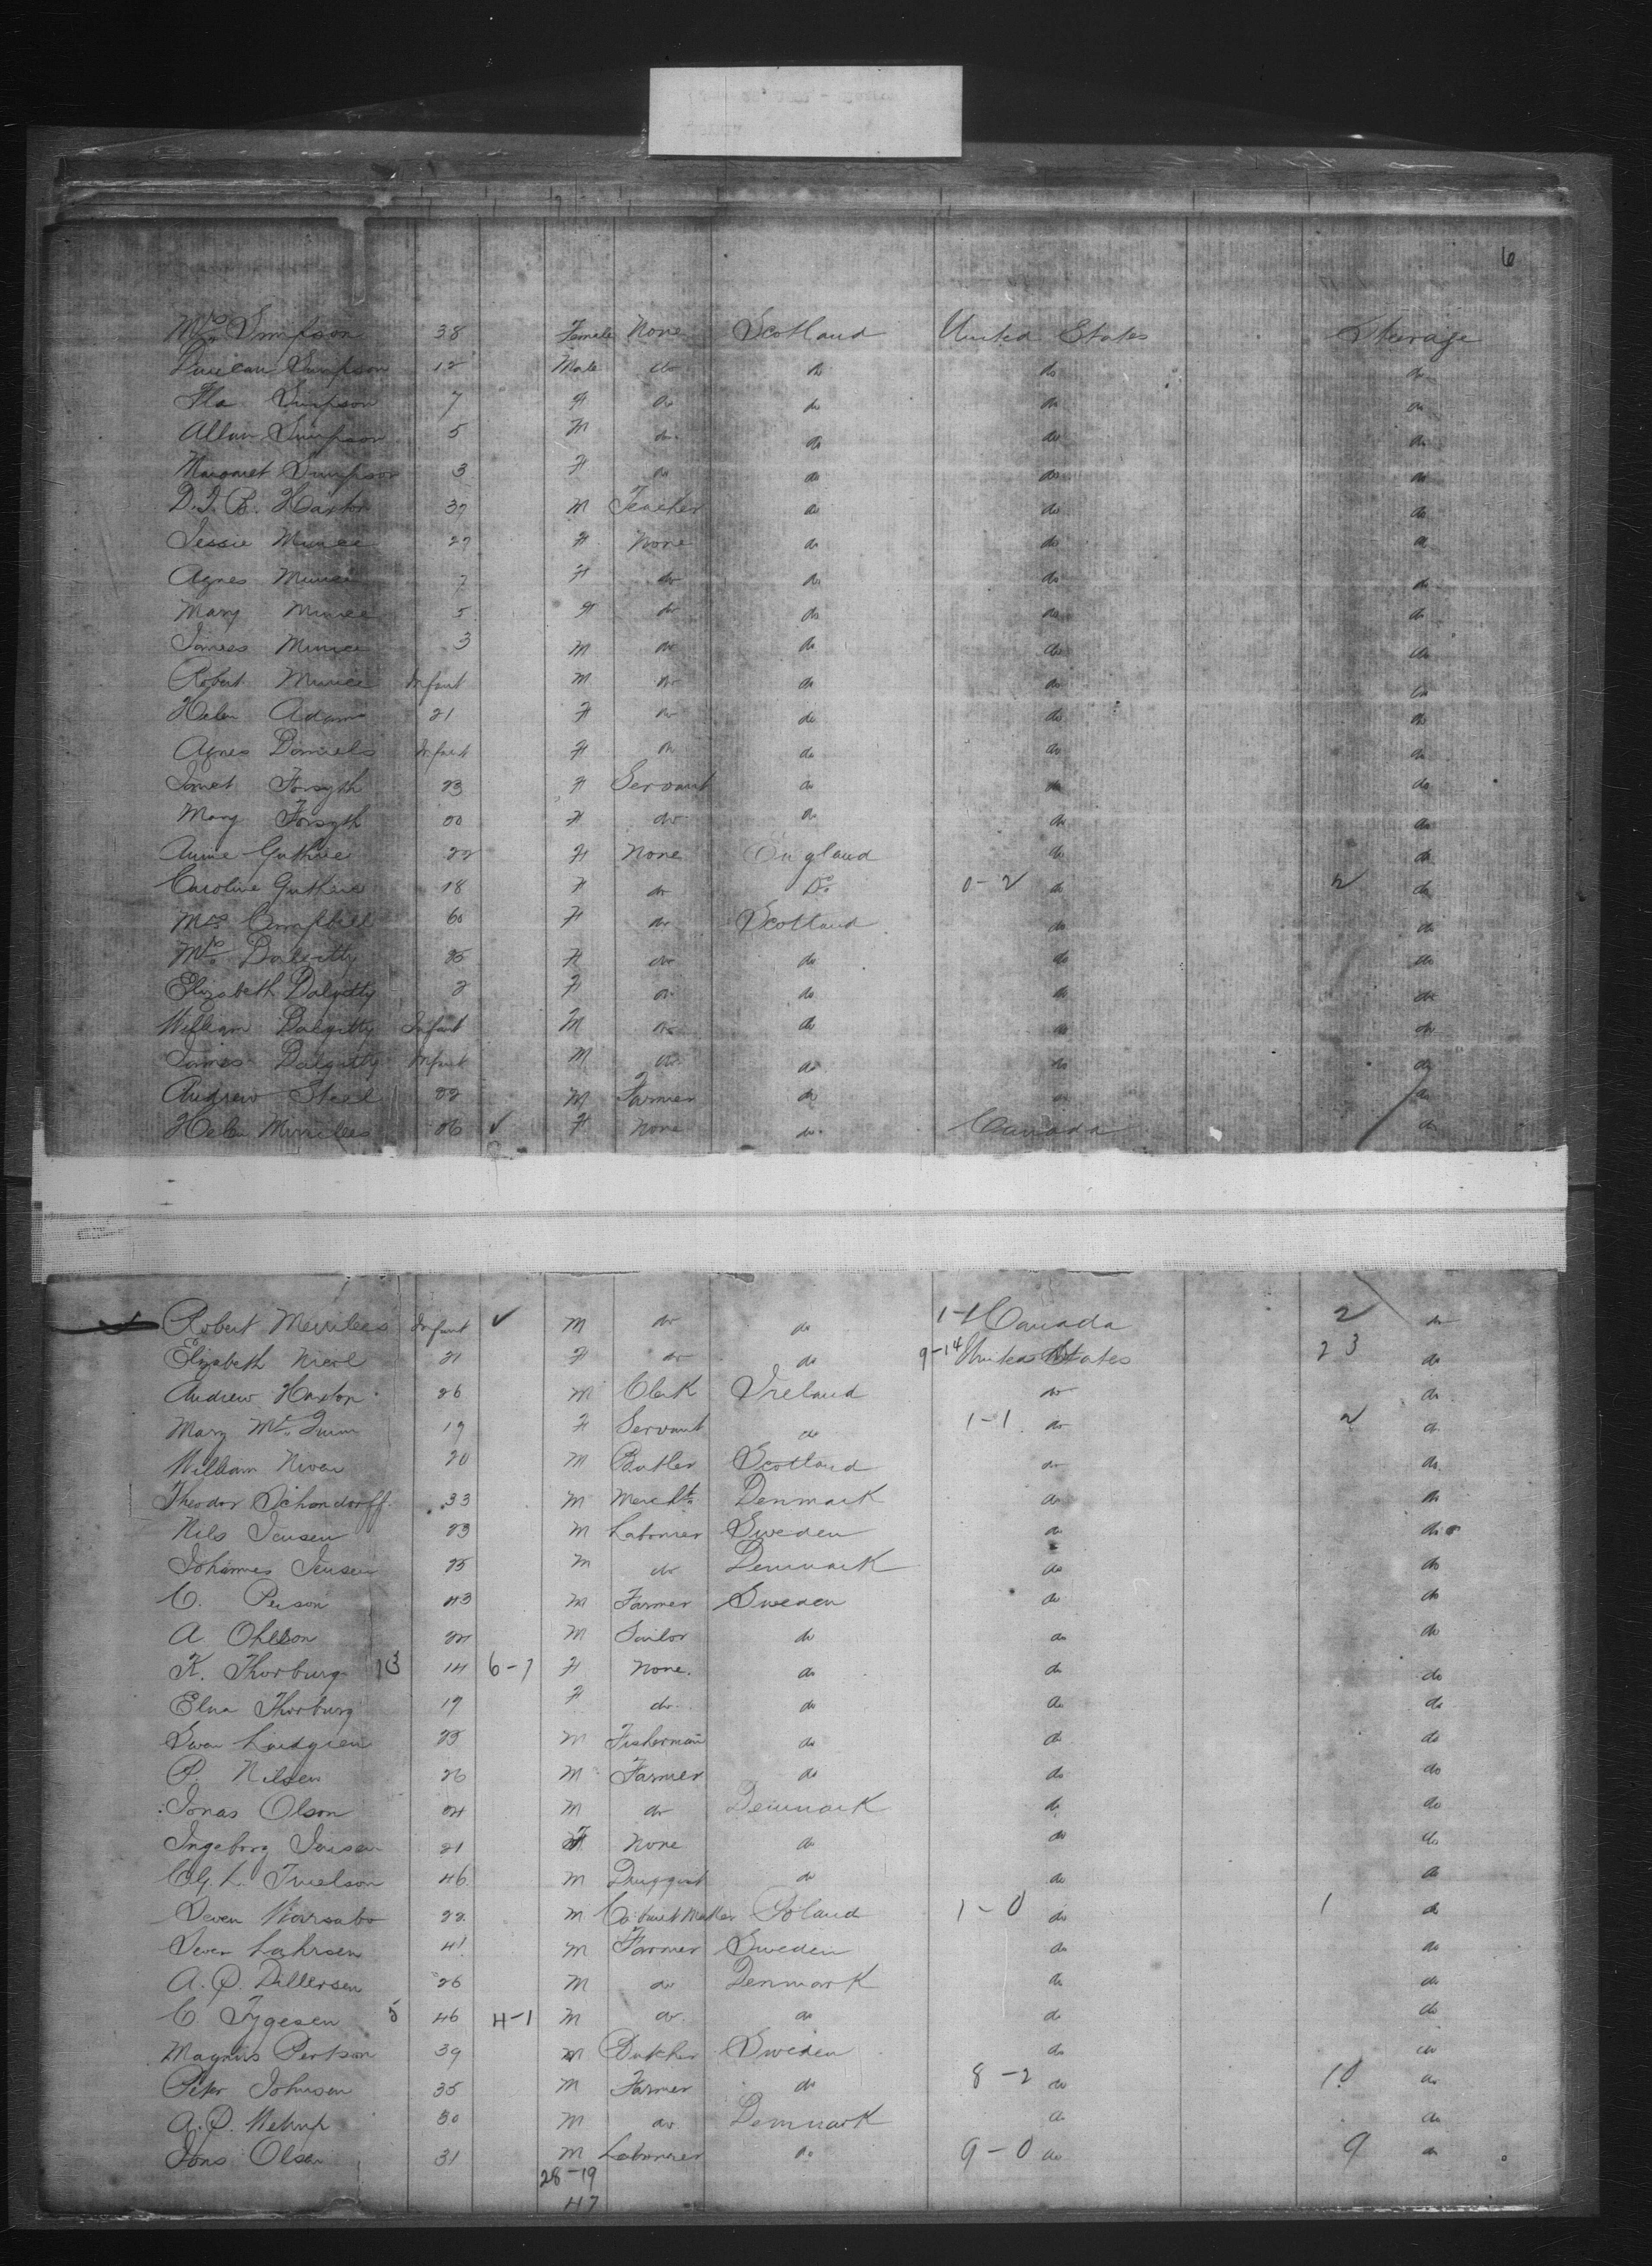 6
Mrs Simpson 38 Female None Scotland United States Steerage
Duncan Simpson 12 Male do do do do
Simpson 7 F do do do do
Allan Simpson 5 M do do do do
Margaret Simpson 3 F do do do do
Haxton 37 M Teacher do do do
Jessie 27 F None do do do
Agnes 7 F do do do do
Mary 5 F do do do do
James 3 M do do do do
Robert Infant M do do do do
Helen Adams 21 F do do do do
Agnes Daniels Infant F do do do do
Janet Forsyth 23 F Servant do do do
Mary Forsyth 20 F do do do do
Annie Guthrie 22 F None England do do
Caroline Guthrie 18 F do Do 0-2 do 2 do
Mrs Campbell 60 F do Scotland do do
Mrs Dalgitty 25 F do do do do
Elizabeth Dalgitty 2 F do do do do
William Dalgitty Infant M do do do do
James Dalgitty Infant M do do do do
Andrew Steel 22 M Farmer do do do
Helen Merrilees 26 ✓ F None do Canada do
Robert Merrilees Infant ✓ M do do 1-1 Canada 2 do
Elizabeth 21 F do do 9-14 United States 23 do
Andrew Haxton 26 M Clerk Ireland do do
Mary Mc Quinn 19 F Servant do 1-1 do 2 do
William Niven 20 M Butler Scotland do do
Theodor Schondorff 33 M Mercht. Denmark do do
Nils Jensen 23 M Labourer Sweden do do
Johannes Jensen 25 M do Denmark do do
C. Person 43 M Farmer Sweden do do
A Ohlson M Sailor do do do
K. Thorburg 13 14 6-7 F None. do do do
Elna Thorburg 17 F do do do do
Swan Lindgren 23 M Fisherman do do do
P. Nilsen 26 M Farmer do do do
Jonas Olson 24 M do Denmark do do
Ingeborg Jensen 21 F None do do do
L. 46 M Druggist do do do
22 M Cabinet Maker Poland 1-0 do 1 do
Lahrsen 41 M Farmer Sweden do do
A. P. Dillersen 26 M do Denmark do do
C. Tygesen 5 46 4-1 M do do do do
Magnus Pertson 39 M Butcher Sweden do do
Peter Johnsen 35 M Farmer do 8-2 do 10 do
30 M do Denmark do do
Jons Olsen 31 M Labourer do 9-0 do 9 do
28-19
47